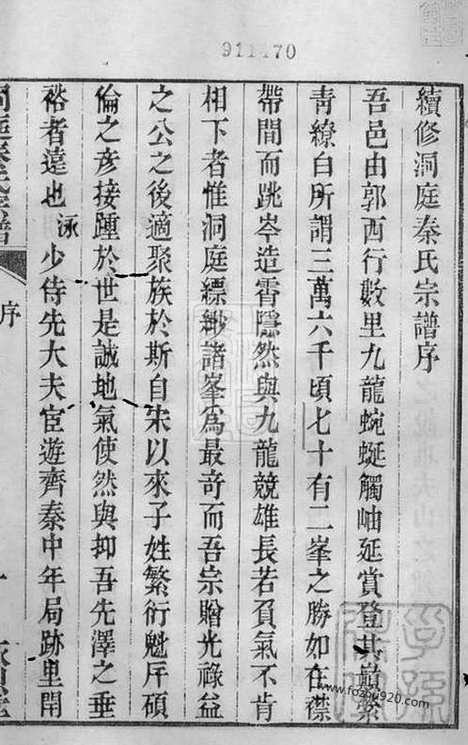 911170
續修洞庭秦氏宗譜序
吾邑由郭西行數里九龍蜿蜒觸岫延賞登其巔縈
青繚白所謂三萬六千頃七十有二峯之勝如在襟
帶間而跳岑造霄隱然與九龍競雄長若負氣不肯
相下者惟洞庭縹緲諸峯爲最奇而吾宗贈光祿益
之公之後適聚族於斯自宋以來子姓繁衍魁岸碩
倫之彥接踵於世是誠地氣使然與抑吾先澤之垂
裕者遠也泳少侍先大夫宦遊齊秦中年局跡里閈
洞庭秦氏宗譜
序
www.fozhu920.com